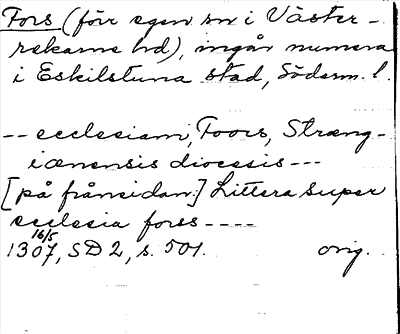 Fors (förr egen sn i Väster-
rekarne hd), ingår numera
i Eskilstuna stad, Söderm. l.
-- ecclesiam, Foors, Stræng-
iænensis diocesis ---
[på frånsidan:] Littera super
ecclesia forss ----
16/5
1307, SD 2, s. 501. orig.